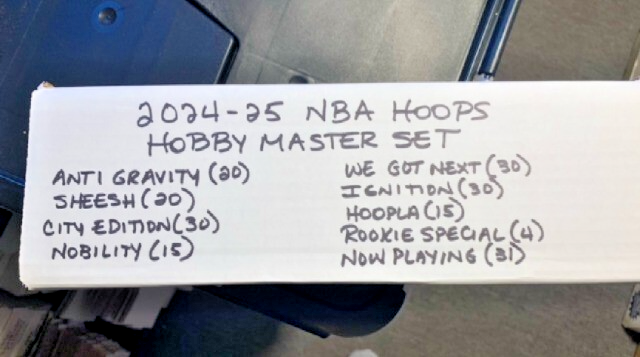 2024-25 NBA HOOPS
HOBBY MASTER SET
ANTI GRAVITY (20)
SHEESH (20)
CITY EDITION (30)
NOBILITY (15)
WE GOT NEXT (30)
IGNITION (30)
HOOPLA (15)
ROOKIE SPECIAL (4)
NOW PLAYING (31)